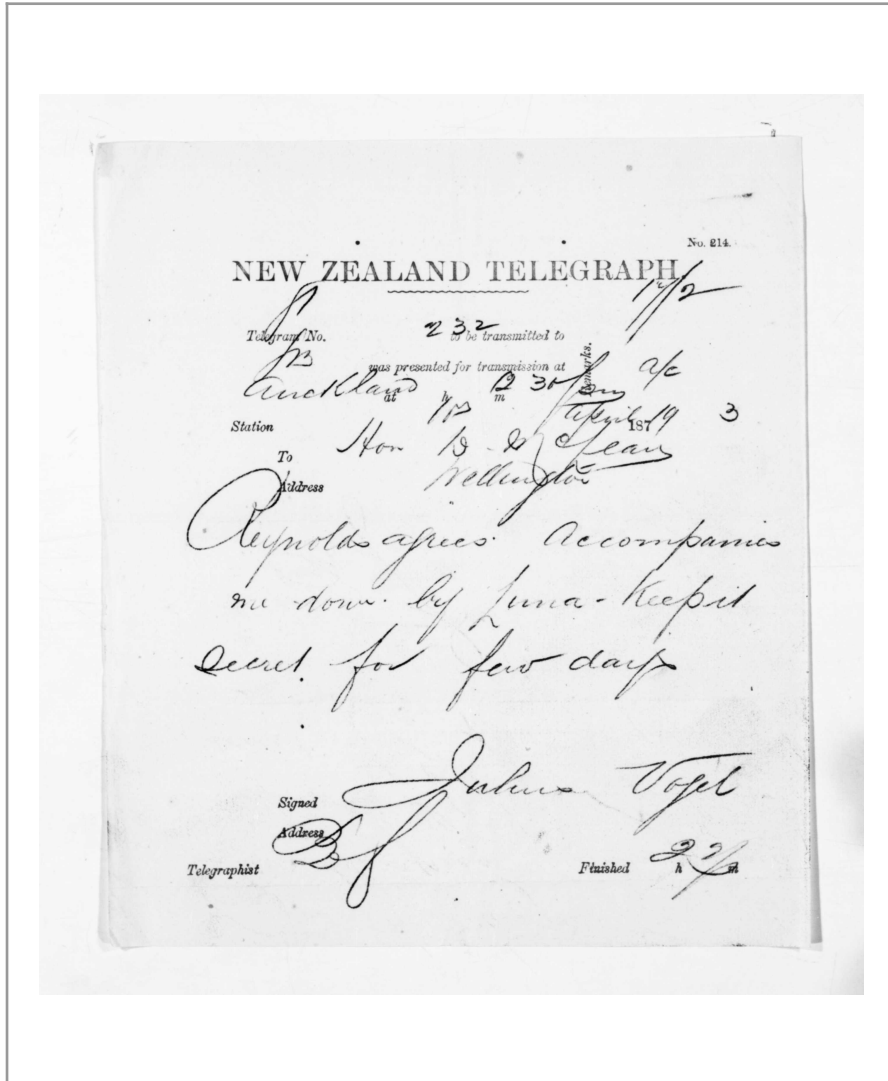 No. 214.
NEW ZEALAND TELEGRAPH.
Telegram No. 232 to be transmitted to
was presented for transmission at
Remarks.
Auckland at h 12 30 m pm
Station April 19 187 3
To Hon D. McLean
Address Wellington
Reynolds agrees. Accompanies
me down by Luna - Keep it
secret for few days
Signed Julius Vogel
Address
Telegraphist Finished h m